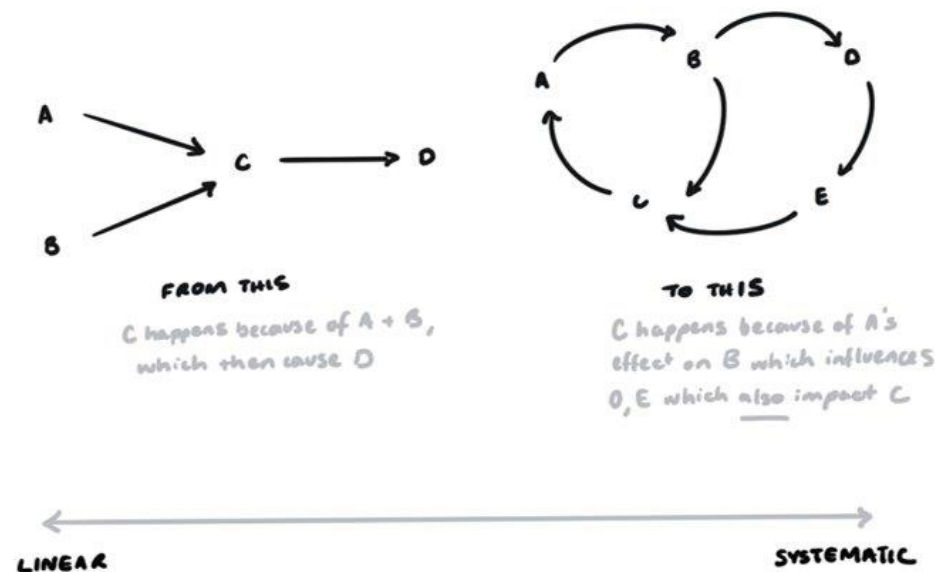 A
B
C
D
FROM THIS
C happens because of A + B,
which then cause D
A
B
D
C
E
TO THIS
C happens because of A's
effect on B which influences
D, E which also impact C
LINEAR
SYSTEMATIC